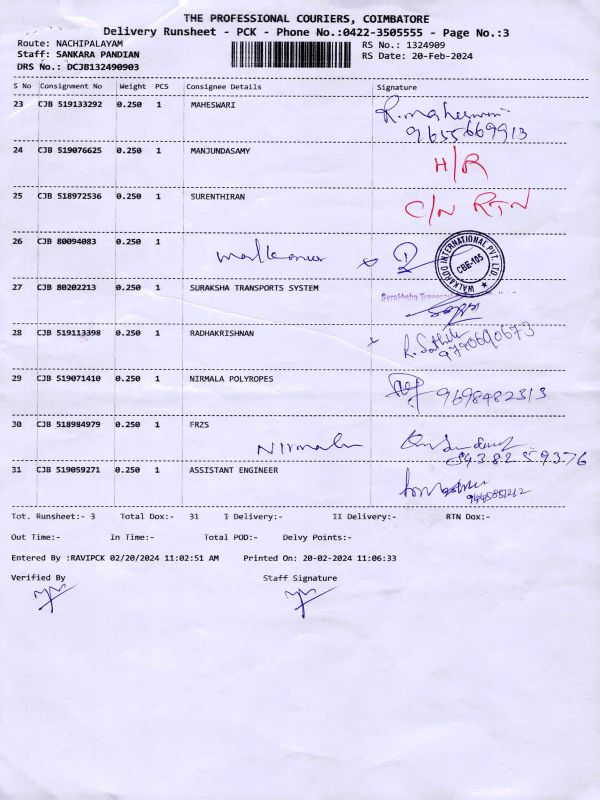 THE PROFESSIONAL COURIERS, COIMBATORE
Delivery Runsheet - PCK - Phone No.:0422-3505555 - Page No.:3
Route: NACHIPALAYAM RS No.: 1324909
Staff: SANKARA PANDIAN RS Date: 20-Feb-2024
DRS No.: DCJB132490903
S No Consignment No Weight PCS Consignee Details Signature
23 CJB 519133292 0.250 1 MAHESWARI R.maheswari
9655669913
24 CJB 519076625 0.250 1 MANJUNDASAMY H/R
25 CJB 518972536 0.250 1 SURENTHIRAN C/N RTN
26 CJB 80094083 0.250 1
WALKAROO INTERNATIONAL PVT. LTD. CBE-105
27 CJB 80202213 0.250 1 SURAKSHA TRANSPORTS SYSTEM
Suraksha
28 CJB 519113398 0.250 1 RADHAKRISHNAN
9790690673
29 CJB 519071410 0.250 1 NIRMALA POLYROPES 9698482313
30 CJB 518984979 0.250 1 FRZS
Nirmala
84382 59376
31 CJB 519059271 0.250 1 ASSISTANT ENGINEER
Tot. Runsheet:- 3 Total Dox:- 31 I Delivery:- II Delivery:- RTN Dox:-
Out Time:- In Time:- Total POD:- Delvy Points:-
Entered By :RAVIPCK 02/20/2024 11:02:51 AM Printed On: 20-02-2024 11:06:33
Verified By Staff Signature